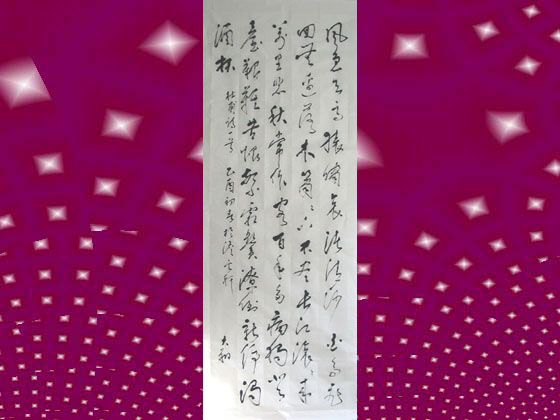 風急天高猿嘯哀渚清沙白鳥飛
回無邊落木蕭〻下不盡長江滾〻來
萬里悲秋常作客百年多病獨登
臺艱難苦恨繁霜鬢潦倒新停濁
酒杯
杜甫詩一首 乙酉初 於 軒